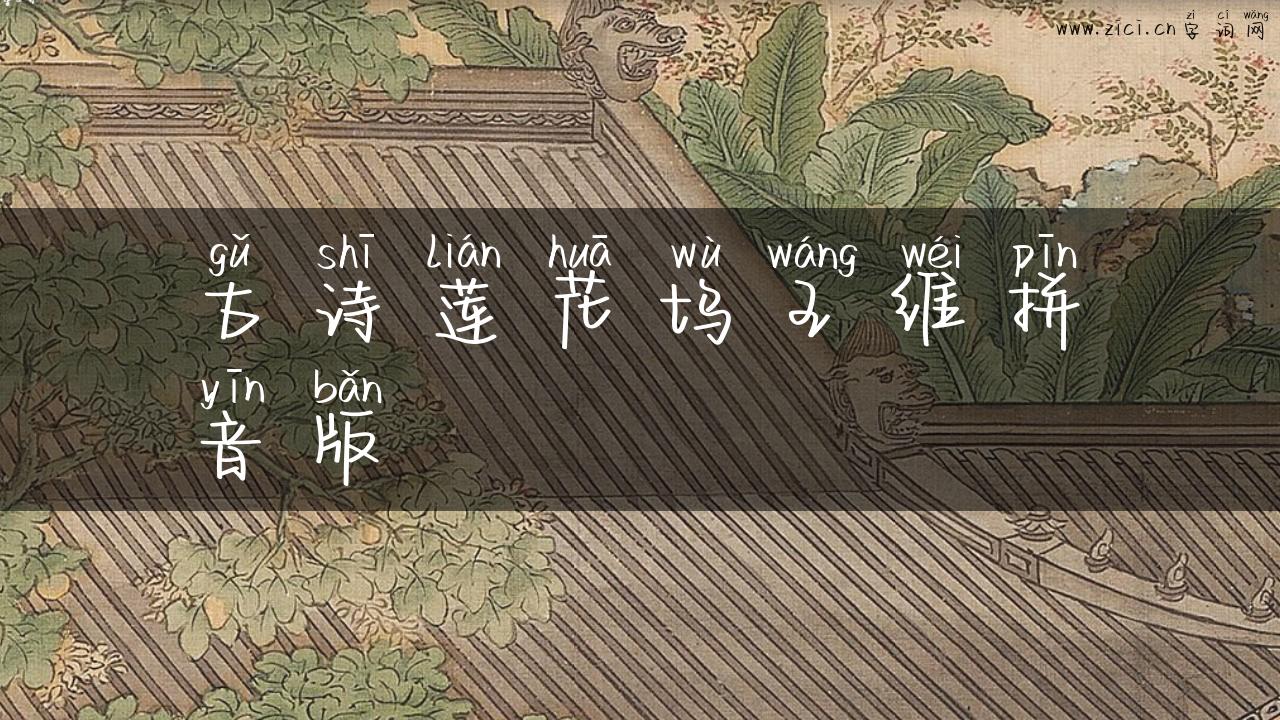 zì cí wǎng
www.zici.cn 字词网
gǔ shī lián huā wù wáng wéi pīn
古诗莲花坞王维拼
yīn bǎn
音版